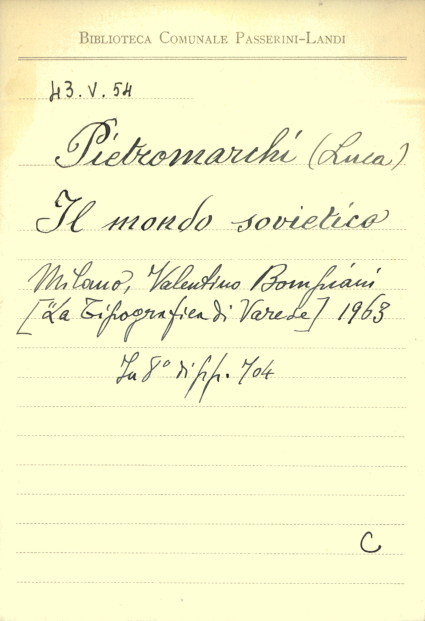 BIBLIOTECA COMUNALE PASSERINI-LANDI
43.V.54
Pietromarchi (Luca)
Il mondo sovietico
Milano, Valentino Bompiani
["La Tipografica di Varese] 1963
In 8° di pp. 704
C